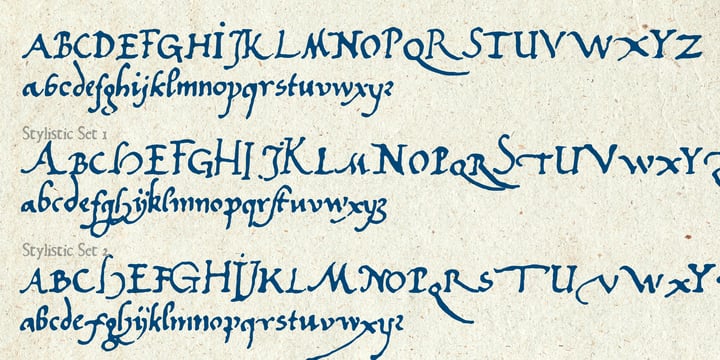 ABCDEFGHIJKLMNOPQRSTUVWXYZ
abcdefghijklmnopqrstuvwxyz
Stylistic Set 1
ABCDEFGHIJKLMNOPQRSTUVWXYZ
abcdefghijklmnopqrstuvwxyz
Stylistic Set 2
ABCDEFGHIJKLMNOPQRSTUVWXY
abcdefghijklmnopqrstuvwxyz